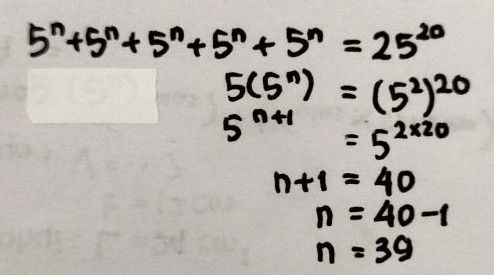 5ⁿ+5ⁿ+5ⁿ+5ⁿ+5ⁿ = 25²⁰
5(5ⁿ) = (5²)²⁰
5ⁿ⁺¹ = 5²ˣ²⁰
n+1 = 40
n = 40-1
n = 39